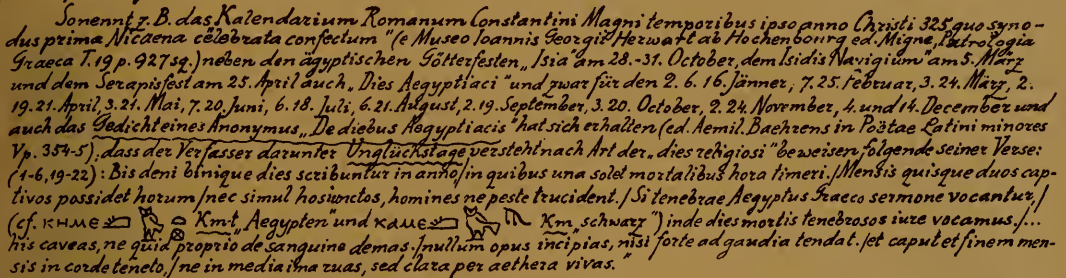 So nennt z. B. das Kalendarium Romanum Constantini Magni temporibus ipso anno Christi 325 quo syno-
dus prima Nicaena celebrata confectum" (e Museo Ioannis Georgii Herwart ab Hochenbourg ed. Migne, Patrologia
Graeca T. 19 p. 927 sq.) neben den ägyptischen Götterfesten „Isia" am 28.-31. October, dem Isidis Navigium" am 5. März
und dem Serapisfest am 25. April auch „Dies Aegyptiaci" und zwar für den 2. 6. 16. Jänner, 7. 25. Februar, 3. 24. März, 2.
19. 21. April, 3. 21. Mai, 7. 20. Juni, 6. 18. Juli, 6. 21. August, 2. 19. September, 3. 20. October, 2. 24. November, 4. und 14. December und
auch das Gedicht eines Anonymus „De diebus Aegyptiacis" hat sich erhalten (ed. Aemil. Baehrens in Poëtae Latini minores
V p. 354-5); dass der Verfasser darunter Unglückstage versteht nach Art der „dies religiosi" beweisen folgende seiner Verse:
(1-6, 19-22): Bis deni binique dies scribuntur in anno / in quibus una solet mortalibus hora timeri. / Mensis quisque duos cap-
tivos possidet horum / nec simul hos iunctos, homines ne peste trucident. / Si tenebrae Aegyptus Graeco sermone vocantur, /
(cf. ⲕⲏⲙⲉ Km-t „Aegypten" und ⲕⲁⲙⲉ Km „schwarz") inde dies mortis tenebrosos iure vocamus. /...
his caveas, ne quid proprio de sanguine demas. / nullum opus incipias, nisi forte ad gaudia tendat. / et caput et finem men-
sis in corde teneto, / ne in media ima ruas, sed clara per aethera vivas."